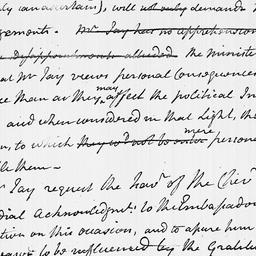 ly can ascertain), will not only demands
gements. Mr Jay has no apprehension
Disappointments alluded the ministe
at Mr Jay views personal Consequences
ce than as they may affect the political In
and when considered in that Light, the
n, to which they wd not be enter mere person
le them—
Jay request the honr of the Chev
dial Acknowledgmts. to the Embassador
tion on this occasion, and to assure him
to be influenced by the Gratitu